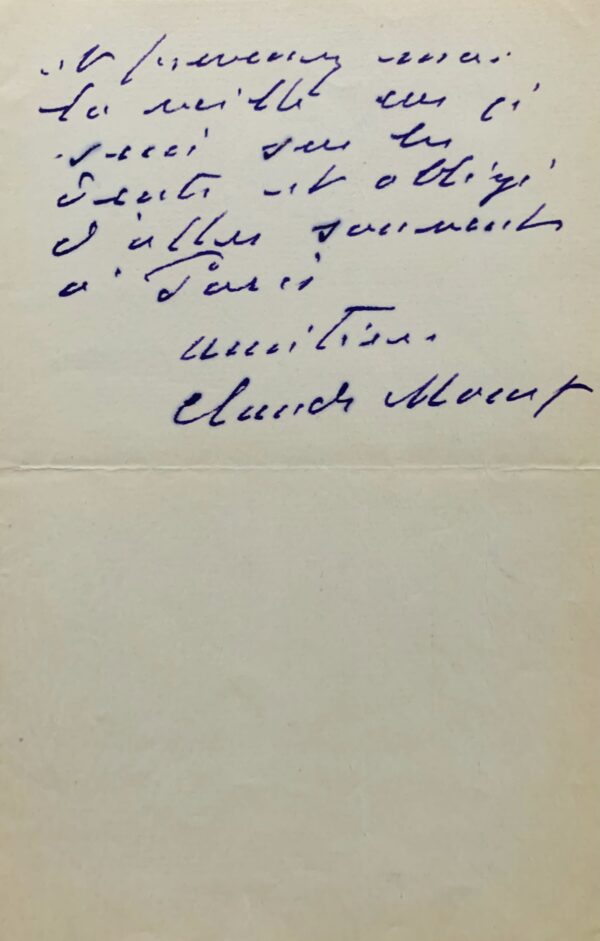 et prevenez moi
la veille car je
suis sur les
dents et obligé
d'aller souvent
à Paris
amitiés.
Claude Monet